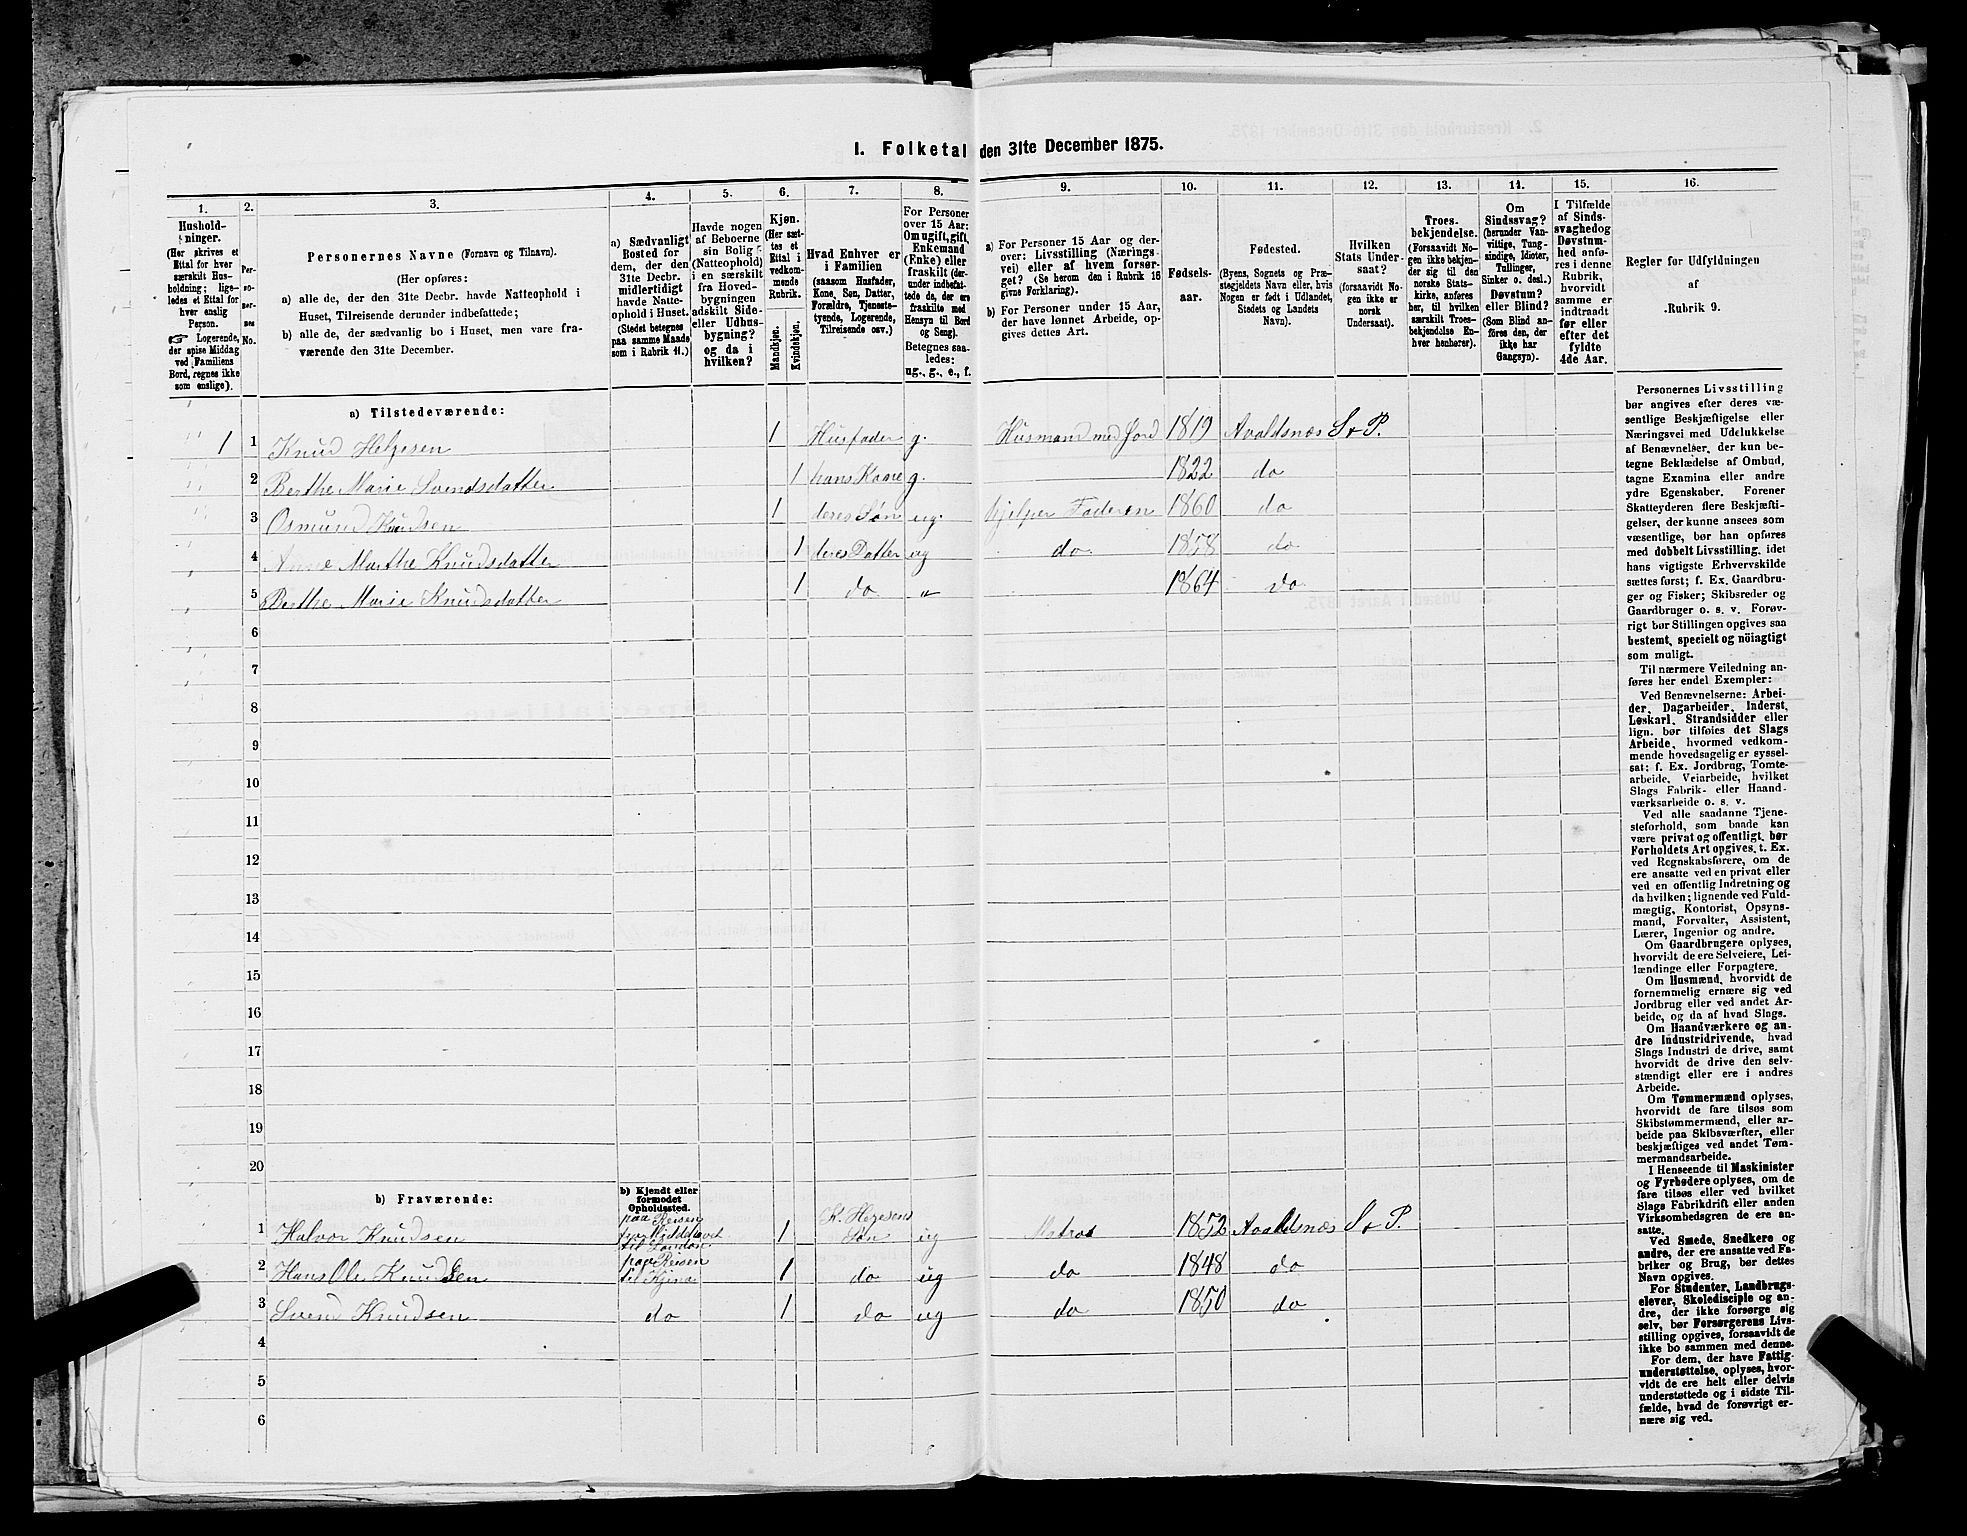 I. Folketal den 31te December 1875.
1. 2. 3. 4. 5. 6. 7. 8. 9. 10. 11. 12. 13. 14. 15. 16.
Hushold-
ninger.
(Her skrives et
Ettal for hver
særskilt Hus-
holdning; lige-
ledes et Ettal for
hver enslig
Person.
☞ Logerende,
der spise Middag
ved Familiens
Bord, regnes ikke
som enslige).
Per-
so-
ner-
nes
No.
Personernes Navne (Fornavn og Tilnavn).
(Her opføres:
a) alle de, der den 31te Decbr. havde Natteophold i
Huset, Tilreisende derunder indbefattede;
b) alle de, der sædvanlig bo i Huset, men vare fra-
værende den 31te December.
a) Sædvanligt
Bosted for
dem, der den
31te Decbr.
midlertidigt
havde Natte-
ophold i Huset.
(Stedet betegnes
paa samme Maade
som i Rubrik 11.)
Havde nogen
af Beboerne
sin Bolig
(Natteophold)
i en særskilt
fra Hoved-
bygningen
adskilt Side-
eller Udhus-
bygning?
og da i
hvilken?
Kjøn.
(Her sæt-
tes et
Ettal i
vedkom-
mende
Rubrik.
Mandkjøn.
Kvindekjøn.
Hvad Enhver er
i Familien
(saasom Husfader,
Kone, Søn, Datter,
Forældre, Tjeneste-
tyende, Logerende,
Tilreisende osv.)
For Personer
over 15 Aar:
Om ugift, gift,
Enkemand
(Enke) eller
fraskilt (der-
under indbefat-
tede de, der ere
fraskilte med
Hensyn til Bord
og Seng).
Betegnes saa-
ledes:
ug., g., e., f.
a) For Personer 15 Aar og der-
over: Livsstilling (Nærings-
vei) eller af hvem forsør-
get? (Se herom den i Rubrik 16
givne Forklaring).
b) For Personer under 15 Aar,
der have lønnet Arbeide, op-
gives dettes Art.
Fødsels-
aar.
Fødested.
(Byens, Sognets og Præ-
stegjeldets Navn eller, hvis
Nogen er født i Udlandet,
Stedets og Landets
Navn).
Hvilken
Stats Under-
saat?
(forsaavidt No-
gen ikke er
norsk
Undersaat).
Troes-
bekjendelse.
(Forsaavidt No-
gen ikke bekjen-
der sig til den
norske Stats-
kirke, anføres
her, til hvilken
særskilt Troes-
bekjendelse En-
hver henhører).
Om
Sindssvag?
(herunder Van-
vittige, Tung-
sindige, Idioter,
Tullinger,
Sinker o. desl.)
Døvstum?
eller Blind?
(Som Blind an-
føres den, der
ikke har
Gangsyn).
I Tilfælde
af Sinds-
svaghed og
Døvstum-
hed anfø-
res i denne
Rubrik,
hvorvidt
samme er
indtraadt
før eller
efter det
fyldte
4de Aar.
Regler for Udfyldningen
af
Rubrik 9.
a) Tilstedeværende:
1 1 Knud Helgesen 1 Husfader g. Husmand med Jord 1819 Avaldsnæs S & P.
2 Berthe Marie Svendsdatter 1 hans Kone g. 1822 do
3 Osmund Knudsen 1 deres Søn ug. hjelper Faderen 1860 do
4 Anne Marthe Knudsdatter 1 deres Datter ug do 1858 do
5 Berthe Marie Knudsdatter 1 do " 1864 do
6
7
8
9
10
11
12
13
14
15
16
17
18
19
20
b) Fraværende:
b) Kjendt eller
formodet
Opholdssted.
1 Halvor Knudsen paa Reisen til London 1 Søn ug Matros 1852 Avaldsnæs S & P.
2 Hans Ole Knudsen paa Reisen til Kjina 1 do ug do 1848 do
3 Svend Knudsen do 1 do ug do 1850 do
4
5
6
Personernes Livsstilling
bør angives efter deres væ-
sentlige Beskjæftigelse eller
Næringsvei med Udelukkelse
af Benævnelser, der kun be-
tegne Beklædelse af Ombud,
tagne Examina eller andre
ydre Egenskaber. Forener
Skatteyderen flere Beskjæfti-
gelser, der kunne ansees som
væsentlige, bør han opføres
med dobbelt Livsstilling, idet
hans vigtigste Erhvervskilde
sættes først; f. Ex. Gaardbru-
ger og Fisker; Skibsreder og
Gaardbruger o. s. v. Forøv-
rigt bør Stillingen opgives saa
bestemt, specielt og nöiagtigt
som muligt.
Til nærmere Veiledning an-
føres her endel Exempler:
Ved Benævnelserne: Arbei-
der, Dagarbeider, Inderst,
Løskarl, Strandsidder eller
lign. bør tilføies det Slags
Arbeide, hvormed vedkom-
mende hovedsagelig er syssel-
sat; f. Ex. Jordbrug, Tomte-
arbeide, Veiarbeide, hvilket
Slags Fabrik- eller Haand-
værksarbeide o. s. v.
Ved alle saadanne Tjene-
steforhold, som baade kan
være privat og offentligt, bør
Forholdets Art opgives, t. Ex.
ved Regnskabsførere, om de
ere ansatte ved en privat eller
ved en offentlig Indretning og
da hvilken; lignende ved Fuld-
mægtig, Kontorist, Opsyns-
mand, Forvalter, Assistent,
Lærer, Ingeniør og andre.
Om Gaardbrugere oplyses,
hvorvidt de ere Selveiere, Lei-
lændinge eller Forpagtere.
Om Husmænd, hvorvidt de
fornemmelig ernære sig ved
Jordbrug eller ved andet Ar-
beide, og da af hvad Slags.
Om Haandværkere og an-
dre Industridrivende, hvad
Slags Industri de drive, samt
hvorvidt de drive den selv-
stændigt eller ere i andres
Arbeide.
Om Tømmermænd oplyses,
hvorvidt de fare tilsøs som
Skibstømmermænd, eller ar-
beide paa Skibsværfter, eller
beskjæftiges ved andet Tøm-
mermandsarbeide.
I Henseende til Maskinister
og Fyrbødere oplyses, om de
fare tilsøs eller ved hvilket
Slags Fabrikdrift eller anden
Virksomhedsgren de ere an-
satte.
Ved Smede, Snedkere og
andre, der ere ansatte ved Fa-
briker og Brug, bør dettes
Navn opgives.
For Studenter, Landbrugs-
elever, Skoledisciple og an-
dre, der ikke forsørge sig
selv, bør Forsørgerens Livs-
stilling opgives, forsaavidt de
ikke bo sammen med denne.
For dem, der have Fattig-
understøttelse, oplyses, hvor-
vidt de ere helt eller delvis
understøttede og i sidste Til-
fælde, hvad de forøvrigt er-
nære sig ved.